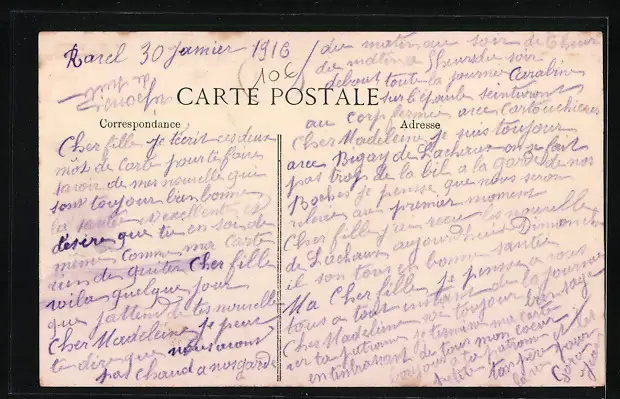 30 Janvier 1916
106
CARTE POSTALE
Correspondance
Adresse
Cher fille je técrit ces deux
môt de Carte pour te faire
savoir de mes nouvelle que
sont toujour bien bonne
la santée excellente et
désire que tu en soi de
même Comme ma Carte
rien de quiter Cher fille
voila quelque jour
que j'attend de tes nouvelle
Cher Madeleine je peux
te dire que nous avons
pas Chaud a nos garde
du matin au soir de
du matin a 8heurs du soir
debout toute la journée Carabine
sur lépaule seinturont
au corp fermée avec Cartouchieres
Cher Madeleine je suis toujour
avec Bigay de Lachaux on se fait
pas trop de la bil a la garde de nos
Boches je pensse que nous seron
relevé au premier moment
Cher fille jai recu les nouvelle
de Lachaux aujourdhuit Dimanche
il son tous en bonne santée
Ma Cher fille je pensse a vous
tous a tout instant de la journée
Cher Madeleine soi toujour bien sage
ver ta patronne je termine ma carte
en tembrassant de tous mon coeur
bonjour a ta patronne et des
petite
ton père pour
la vie